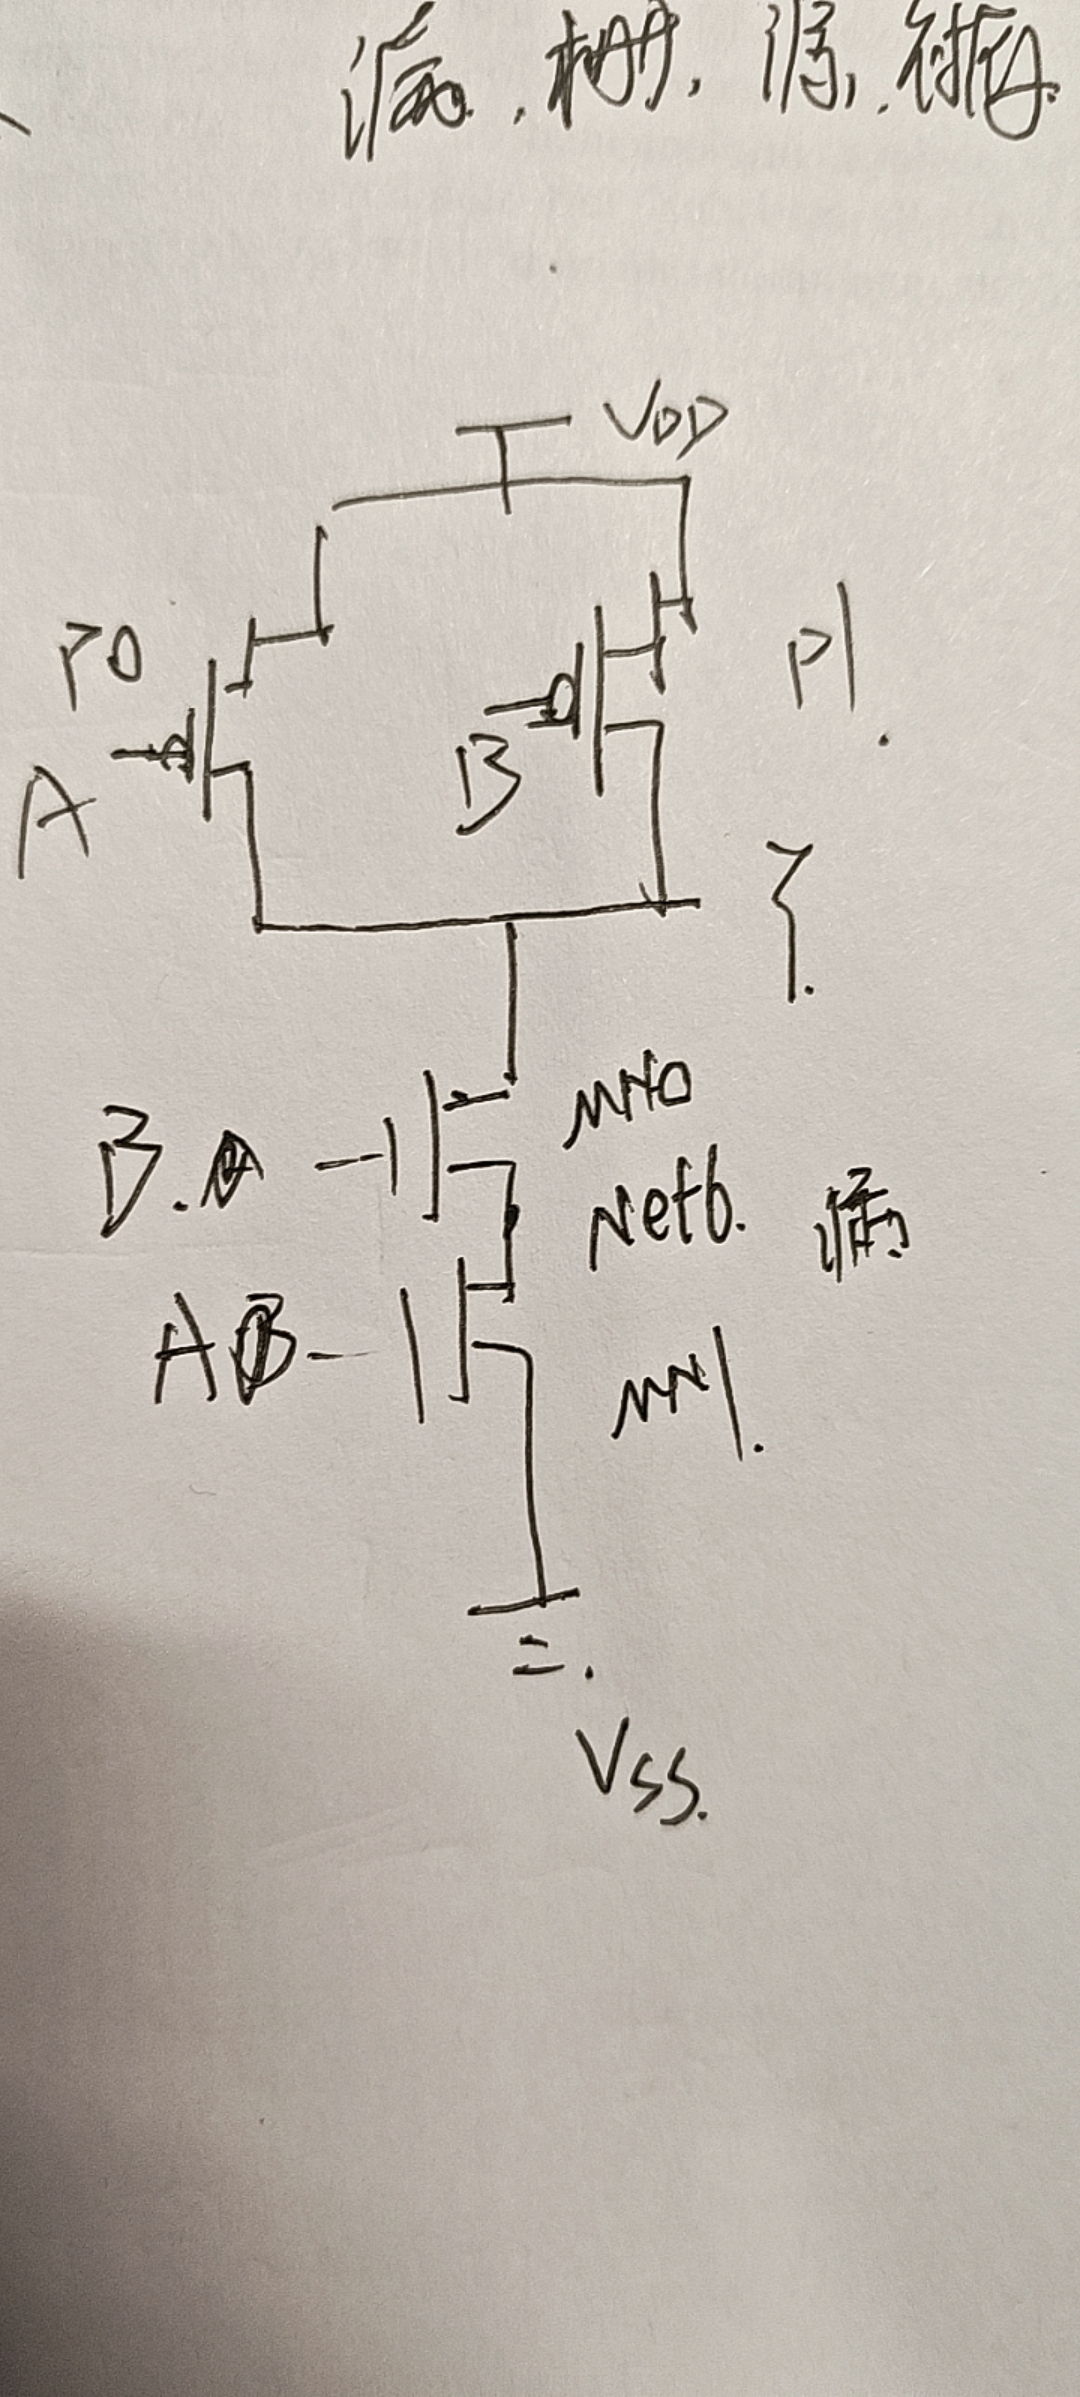 漏.,栅,源,衬底.
VDD
P0
P1.
A
B
Y.
MN0
B.A
Net6. 漏
AB
MN1.
VSS.